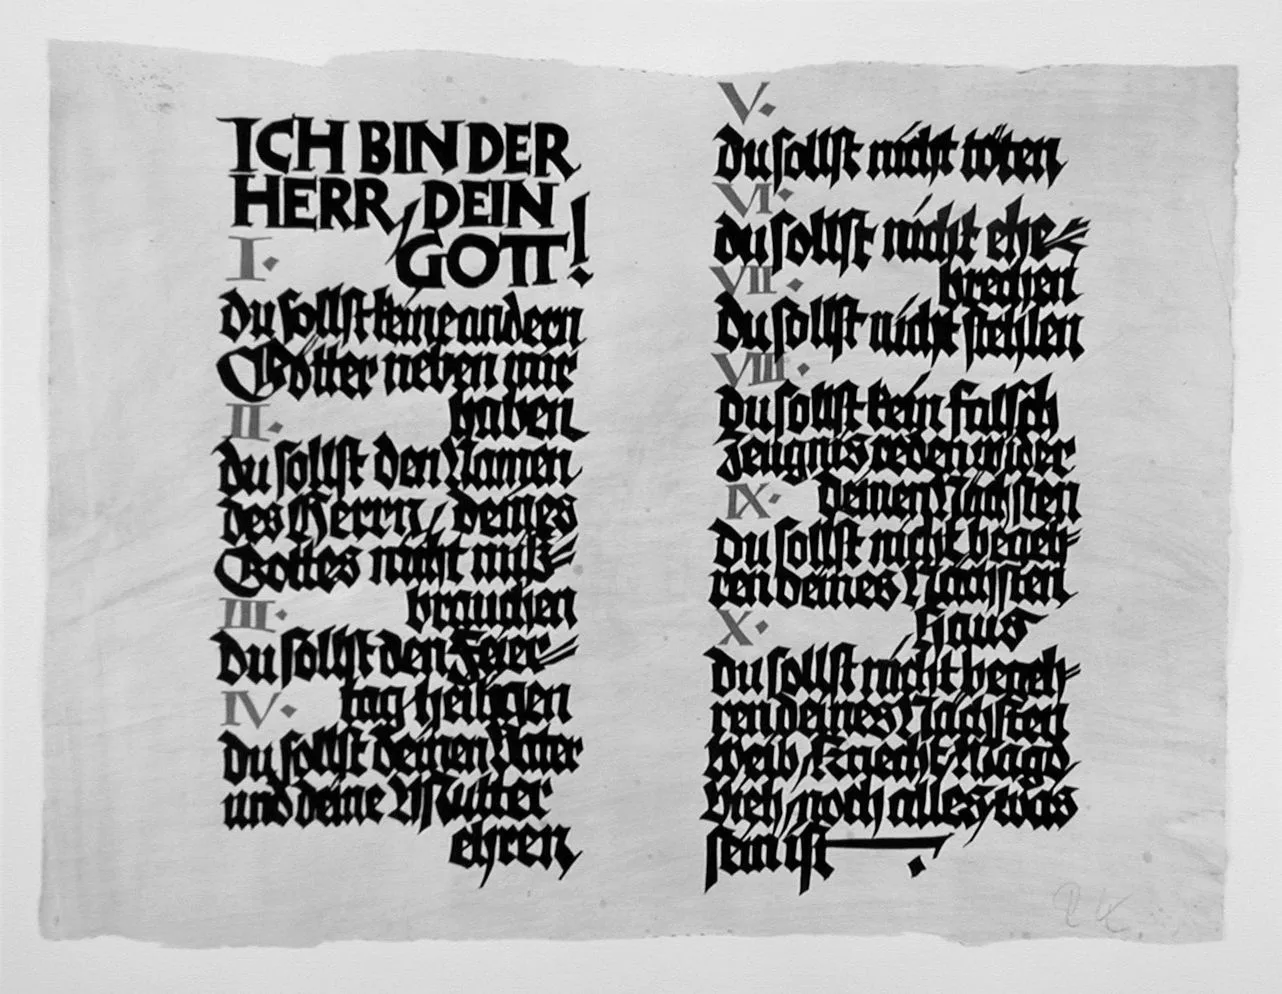 ICH BIN DER
HERR, DEIN
GOTT!
I.
du sollst keine andern
Götter neben mir
haben
II.
du sollst den Namen
des Herrn, deines
Gottes nicht miß=
brauchen
III.
du sollst den Feier=
tag heiligen
IV.
du sollst deinen Vater
und deine Mutter
ehren
V.
du sollst nicht töten
VI.
du sollst nicht ehe=
brechen
VII.
du sollst nicht stehlen
VIII.
du sollst kein falsch
Zeugnis reden wider
deinen Nächsten
IX.
du sollst nicht begeh=
ren deines Nächsten
Haus
X.
du sollst nicht begeh=
ren deines Nächsten
Weib, Knecht, Magd,
Vieh, noch alles was
sein ist